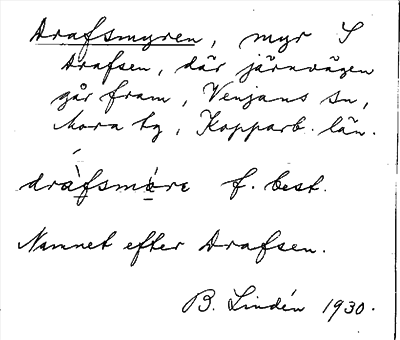 Drafsmyren, myr S
Drafsen, där järnvägen
går fram, Venjans sn,
Mora tg, Kopparb. län.
dràfsmɩ́rɛ f. best.
Namnet efter Drafsen.
B. Lindén 1930.